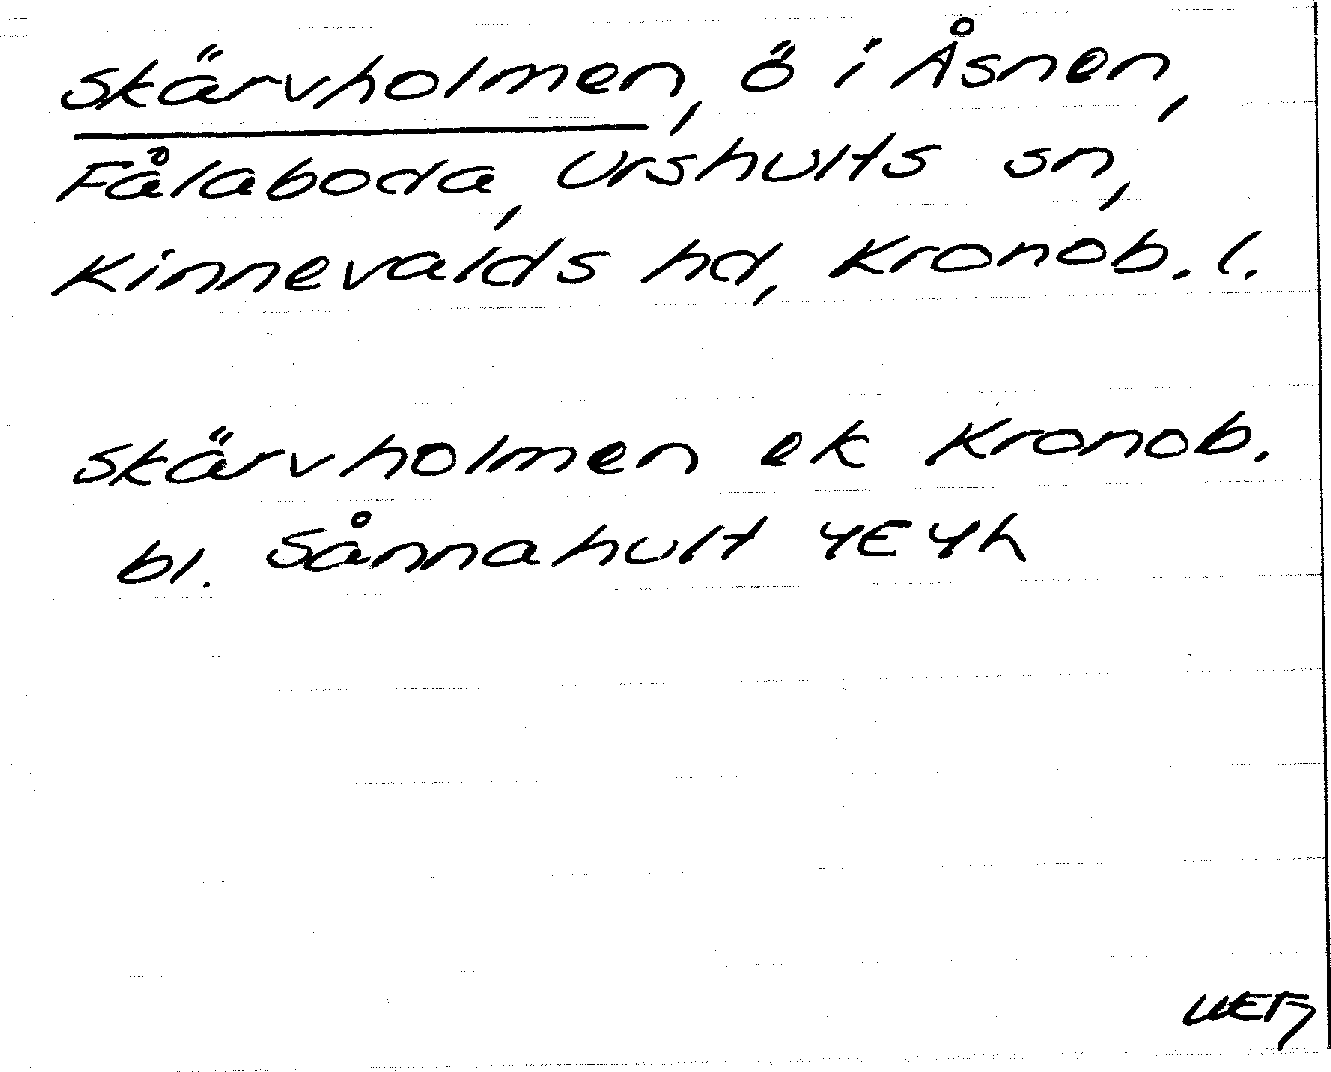 Skärvholmen, ö i Åsnen,
Fålaboda, Urshults sn,
Kinnevalds hd, Kronob. l.
Skärvholmen ek Kronob.
bl. Sånnahult 4E4h